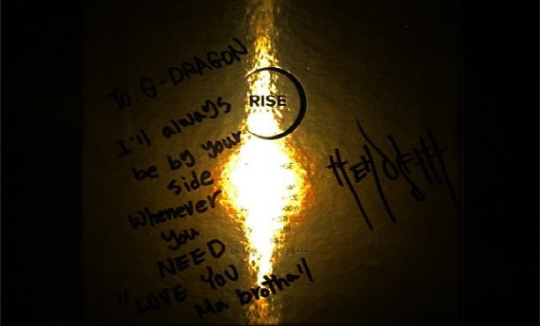 To. G-DRAGON
RISE
I'll always
be by your
side
Whenever
you
NEED
"LOVE YOU
Ma brotha"